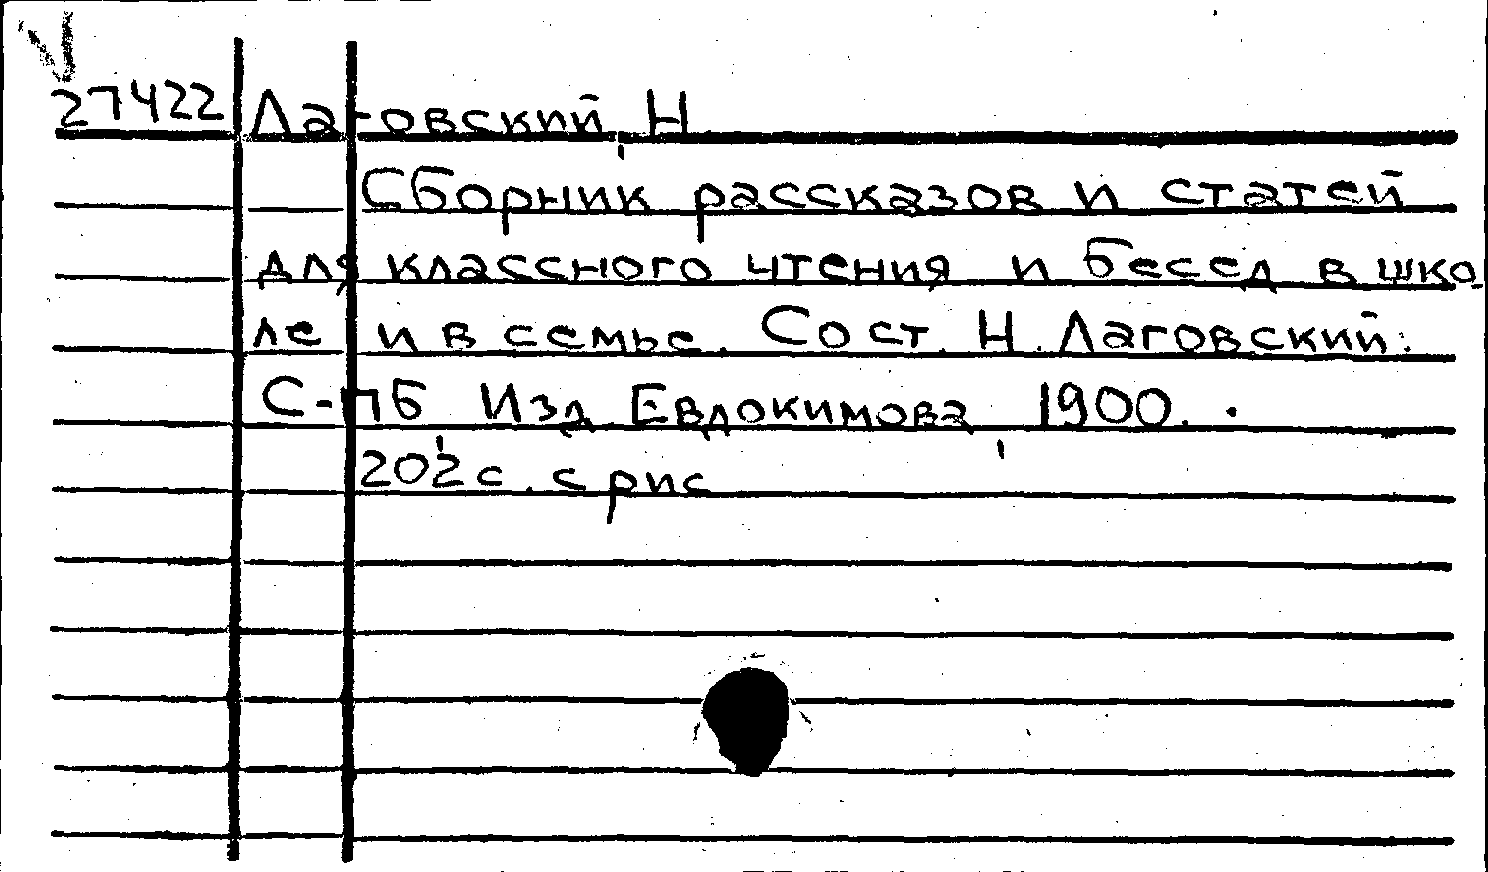 27422 Лаговский, Н
Сборник рассказов и статей
для классного чтения и бесед в шко
ле и в семье. Сост. Н. Лаговский.
С-ПБ, Изд. Евдокимова, 1900.
202 с. с рис